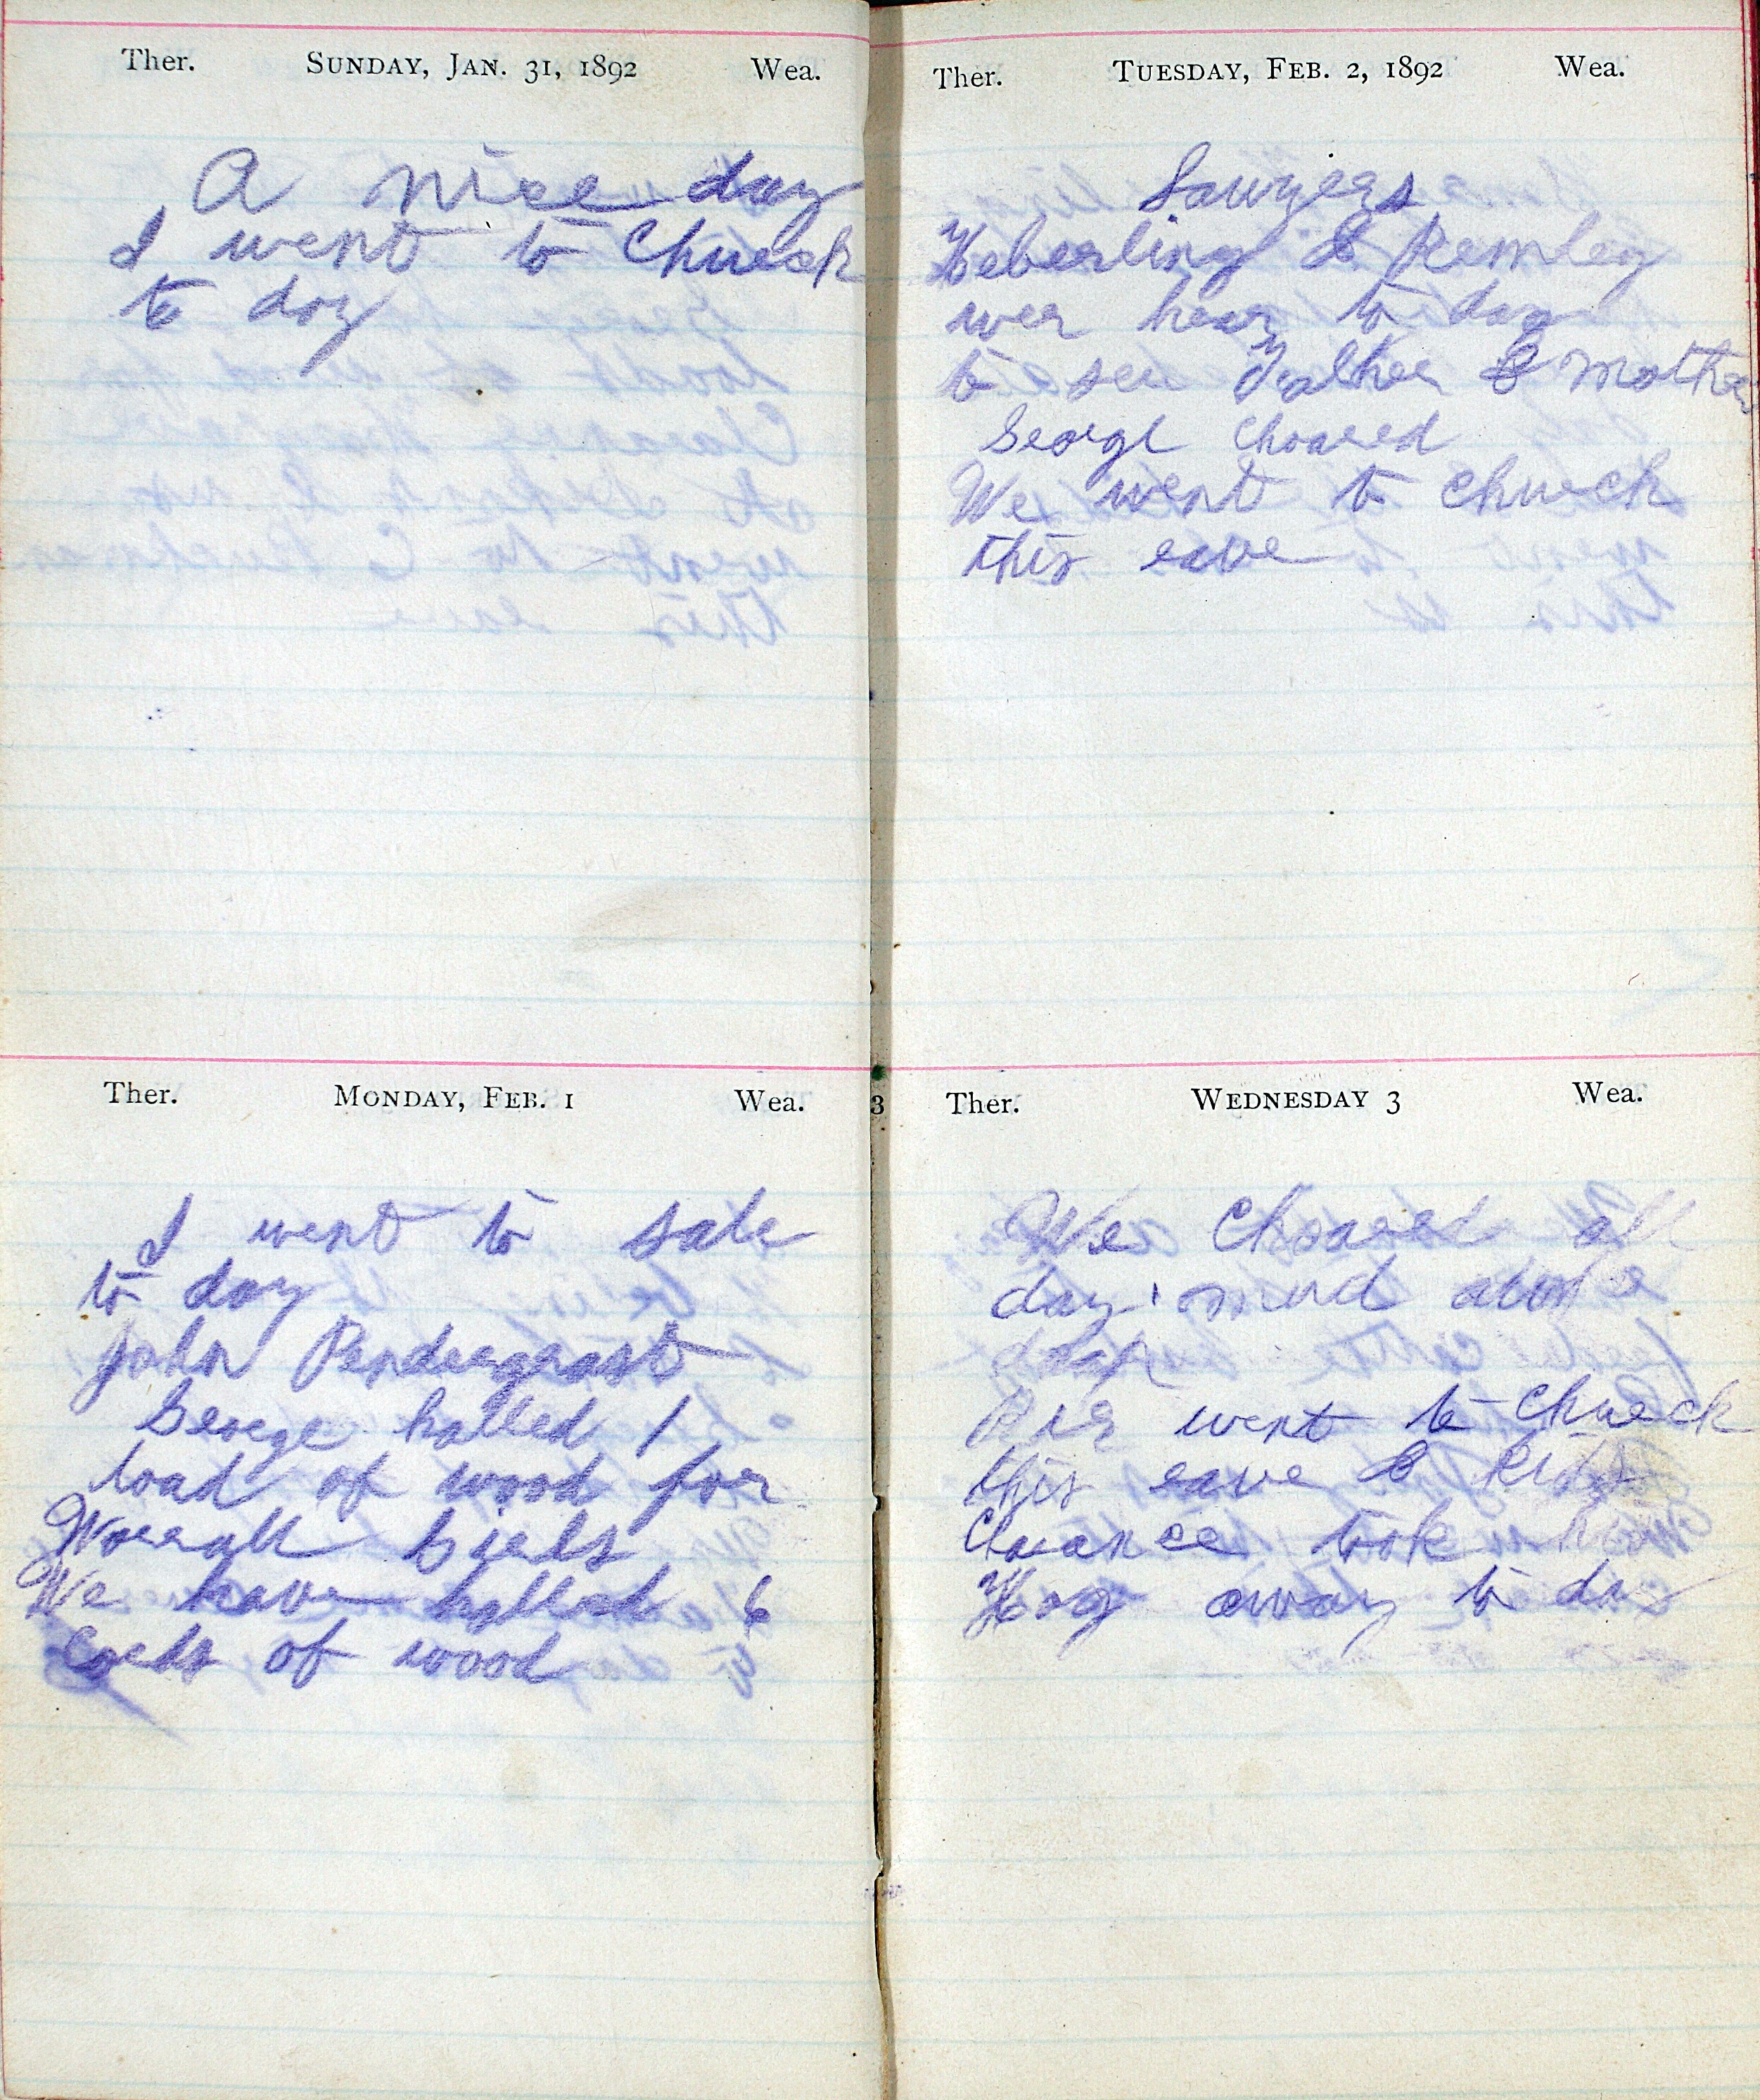 Ther. SUNDAY, JAN. 31, 1892 Wea.
A nice day
I went to Church
to day
Ther. MONDAY, FEB. 1 Wea.
I went to sale
to day
John Pendergrast
George halled 1
load of wood for
girls
We have halled 6
Cords of wood
Ther. TUESDAY, FEB. 2, 1892 Wea.
Sawyers
Heberling & Remley
wer hear to day
to see Father & Mother
George Choared
We went to church
this eave
3
Ther. WEDNESDAY 3 Wea.
We Choared all
day mud
deap
went to Church
this eave &
took
Hog away to day